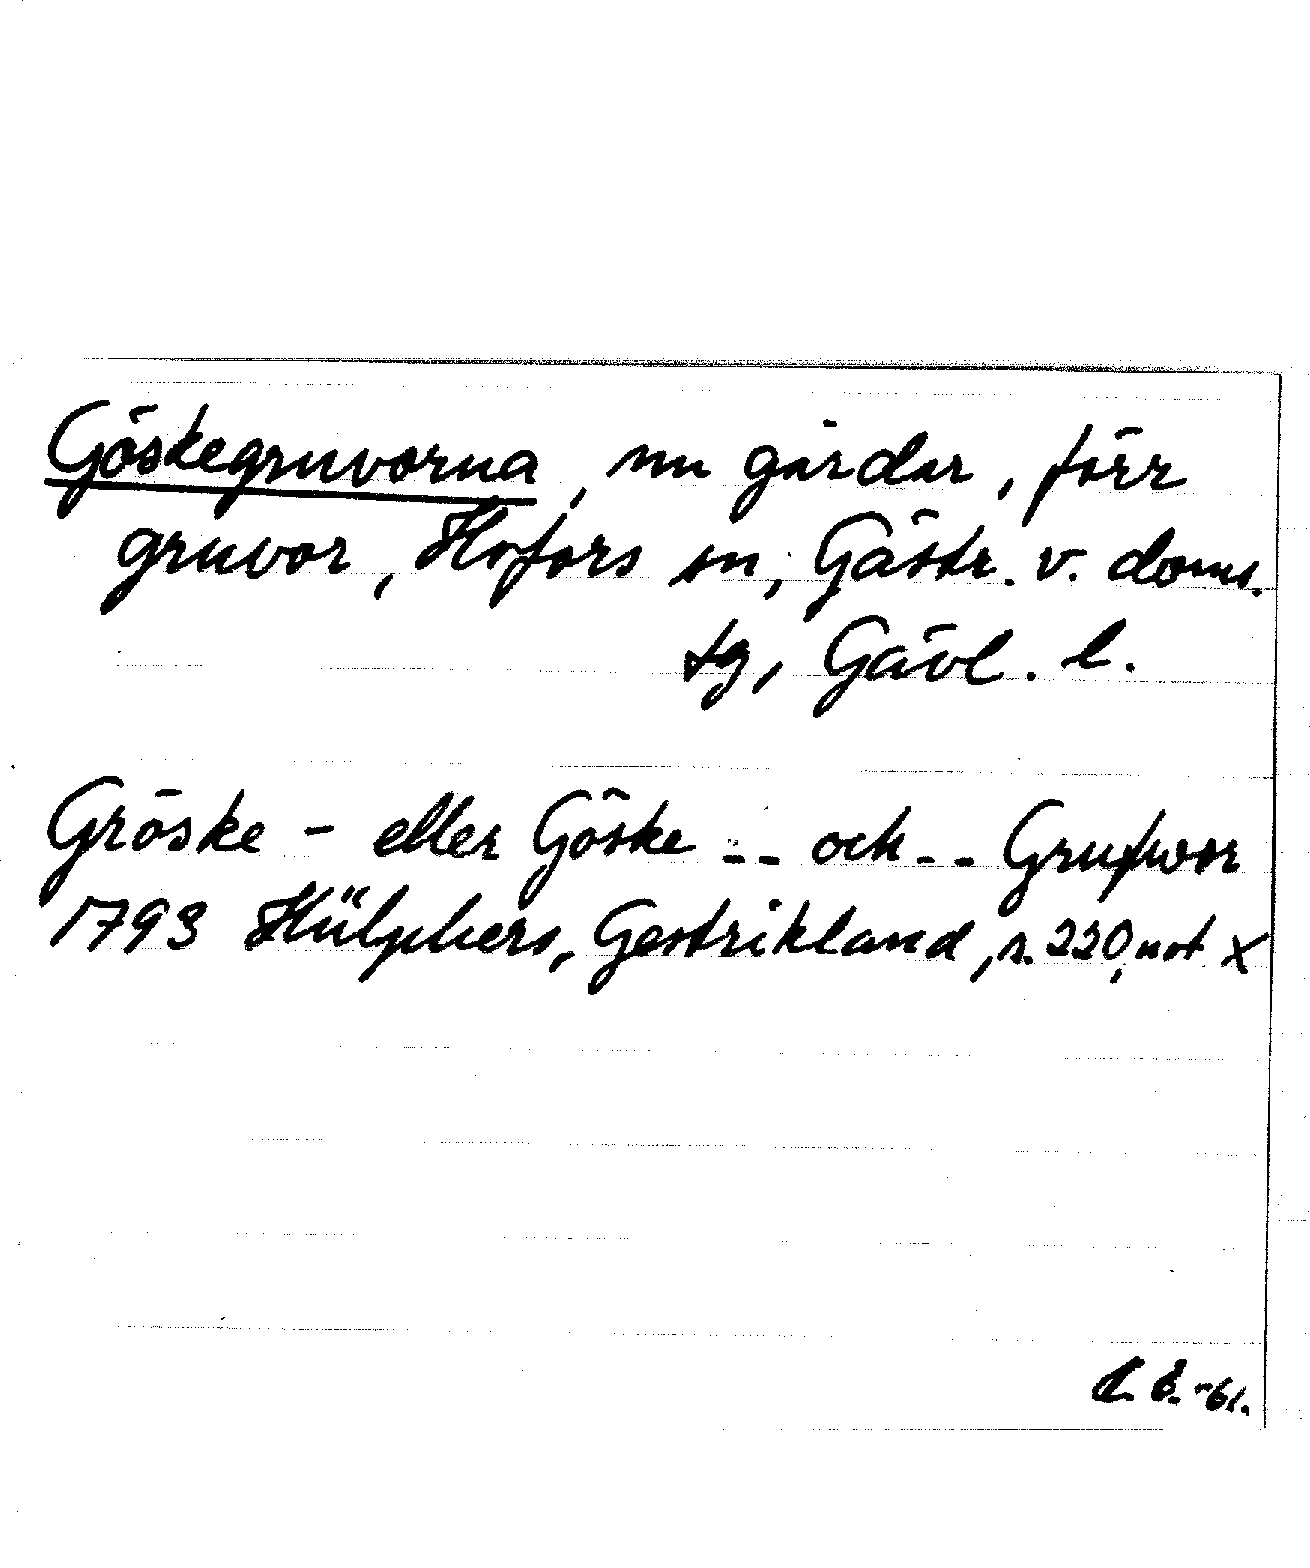 Göskegruvorna, nu gårdar, förr
gruvor, Hofors sn, Gästr. v. doms.
tg, Gävl. l.
Gröske - eller Göske -- och -- Grufwor
1793 Hülphers, Gestrikland, s. 220, not x
-61.